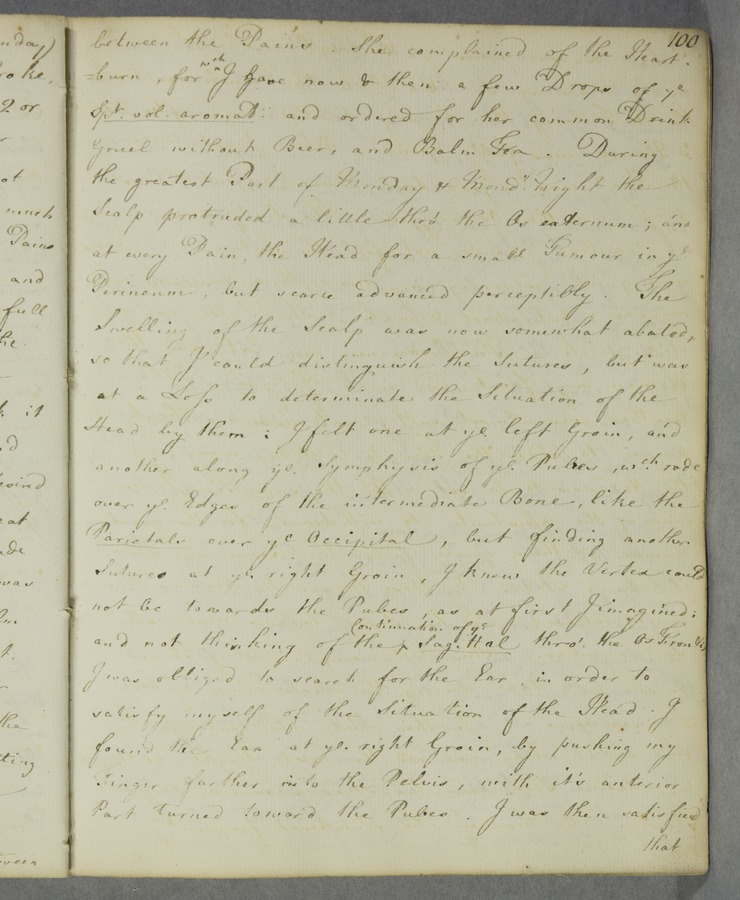 100
between the Pains. She complained of the Heart-
=burn, for wch I gave now & then a few Drops of ye
Spt. vol. aromat: and ordered for her common Drink
Gruel without Beer, and Balm Tea. During
the greatest Part of Monday & Mond: Night the
Scalp protruded a little thro' the Os externum; and
at every Pain, the Head for a small Tumour in ye
Perineum, but scarce advanced perceptibly. The
Swelling of the Scalp was now somewhat abated,
so that I could distinguish the Sutures, but was
at a Loss to determinate the Situation of the
Head by them: I felt one at ye left Groin, and
another along ye Symphysis of ye Pubes, wch rode
over ye Edges of the intermediate Bone, like the
Parietals over ye Occipital, but finding another
Sutures at ye right Groin, I knew the Vertex could
not be towards the Pubes, as at first I imagined;
and not thinking of the continuation of ye Sagittal thro' the Os Frontis,
I was obliged to search for the Ear, in order to
satisfy myself of the Situation of the Head. I
found the Ear at ye right Groin, by pushing my
Finger farther into the Pelvis, with it's anterior
Part turned toward the Pubes. I was then satisfied
that
nday)
roke,
2 or
ot
much
Pains
and
full
he
it
sired
eat
was
the
tting
tween